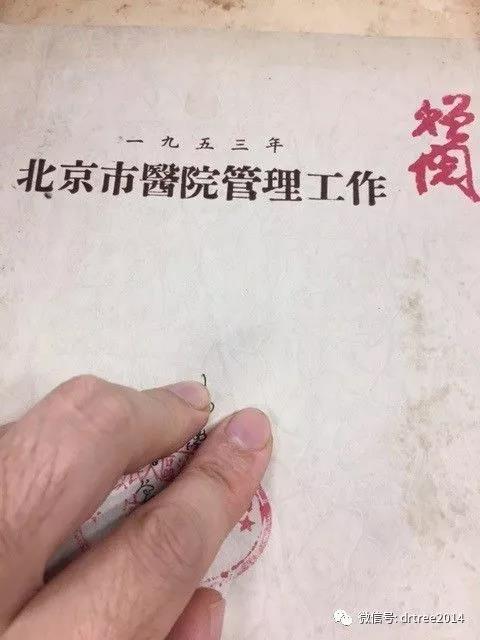 一九五三年
北京市醫院管理工作
微信号: drtree2014